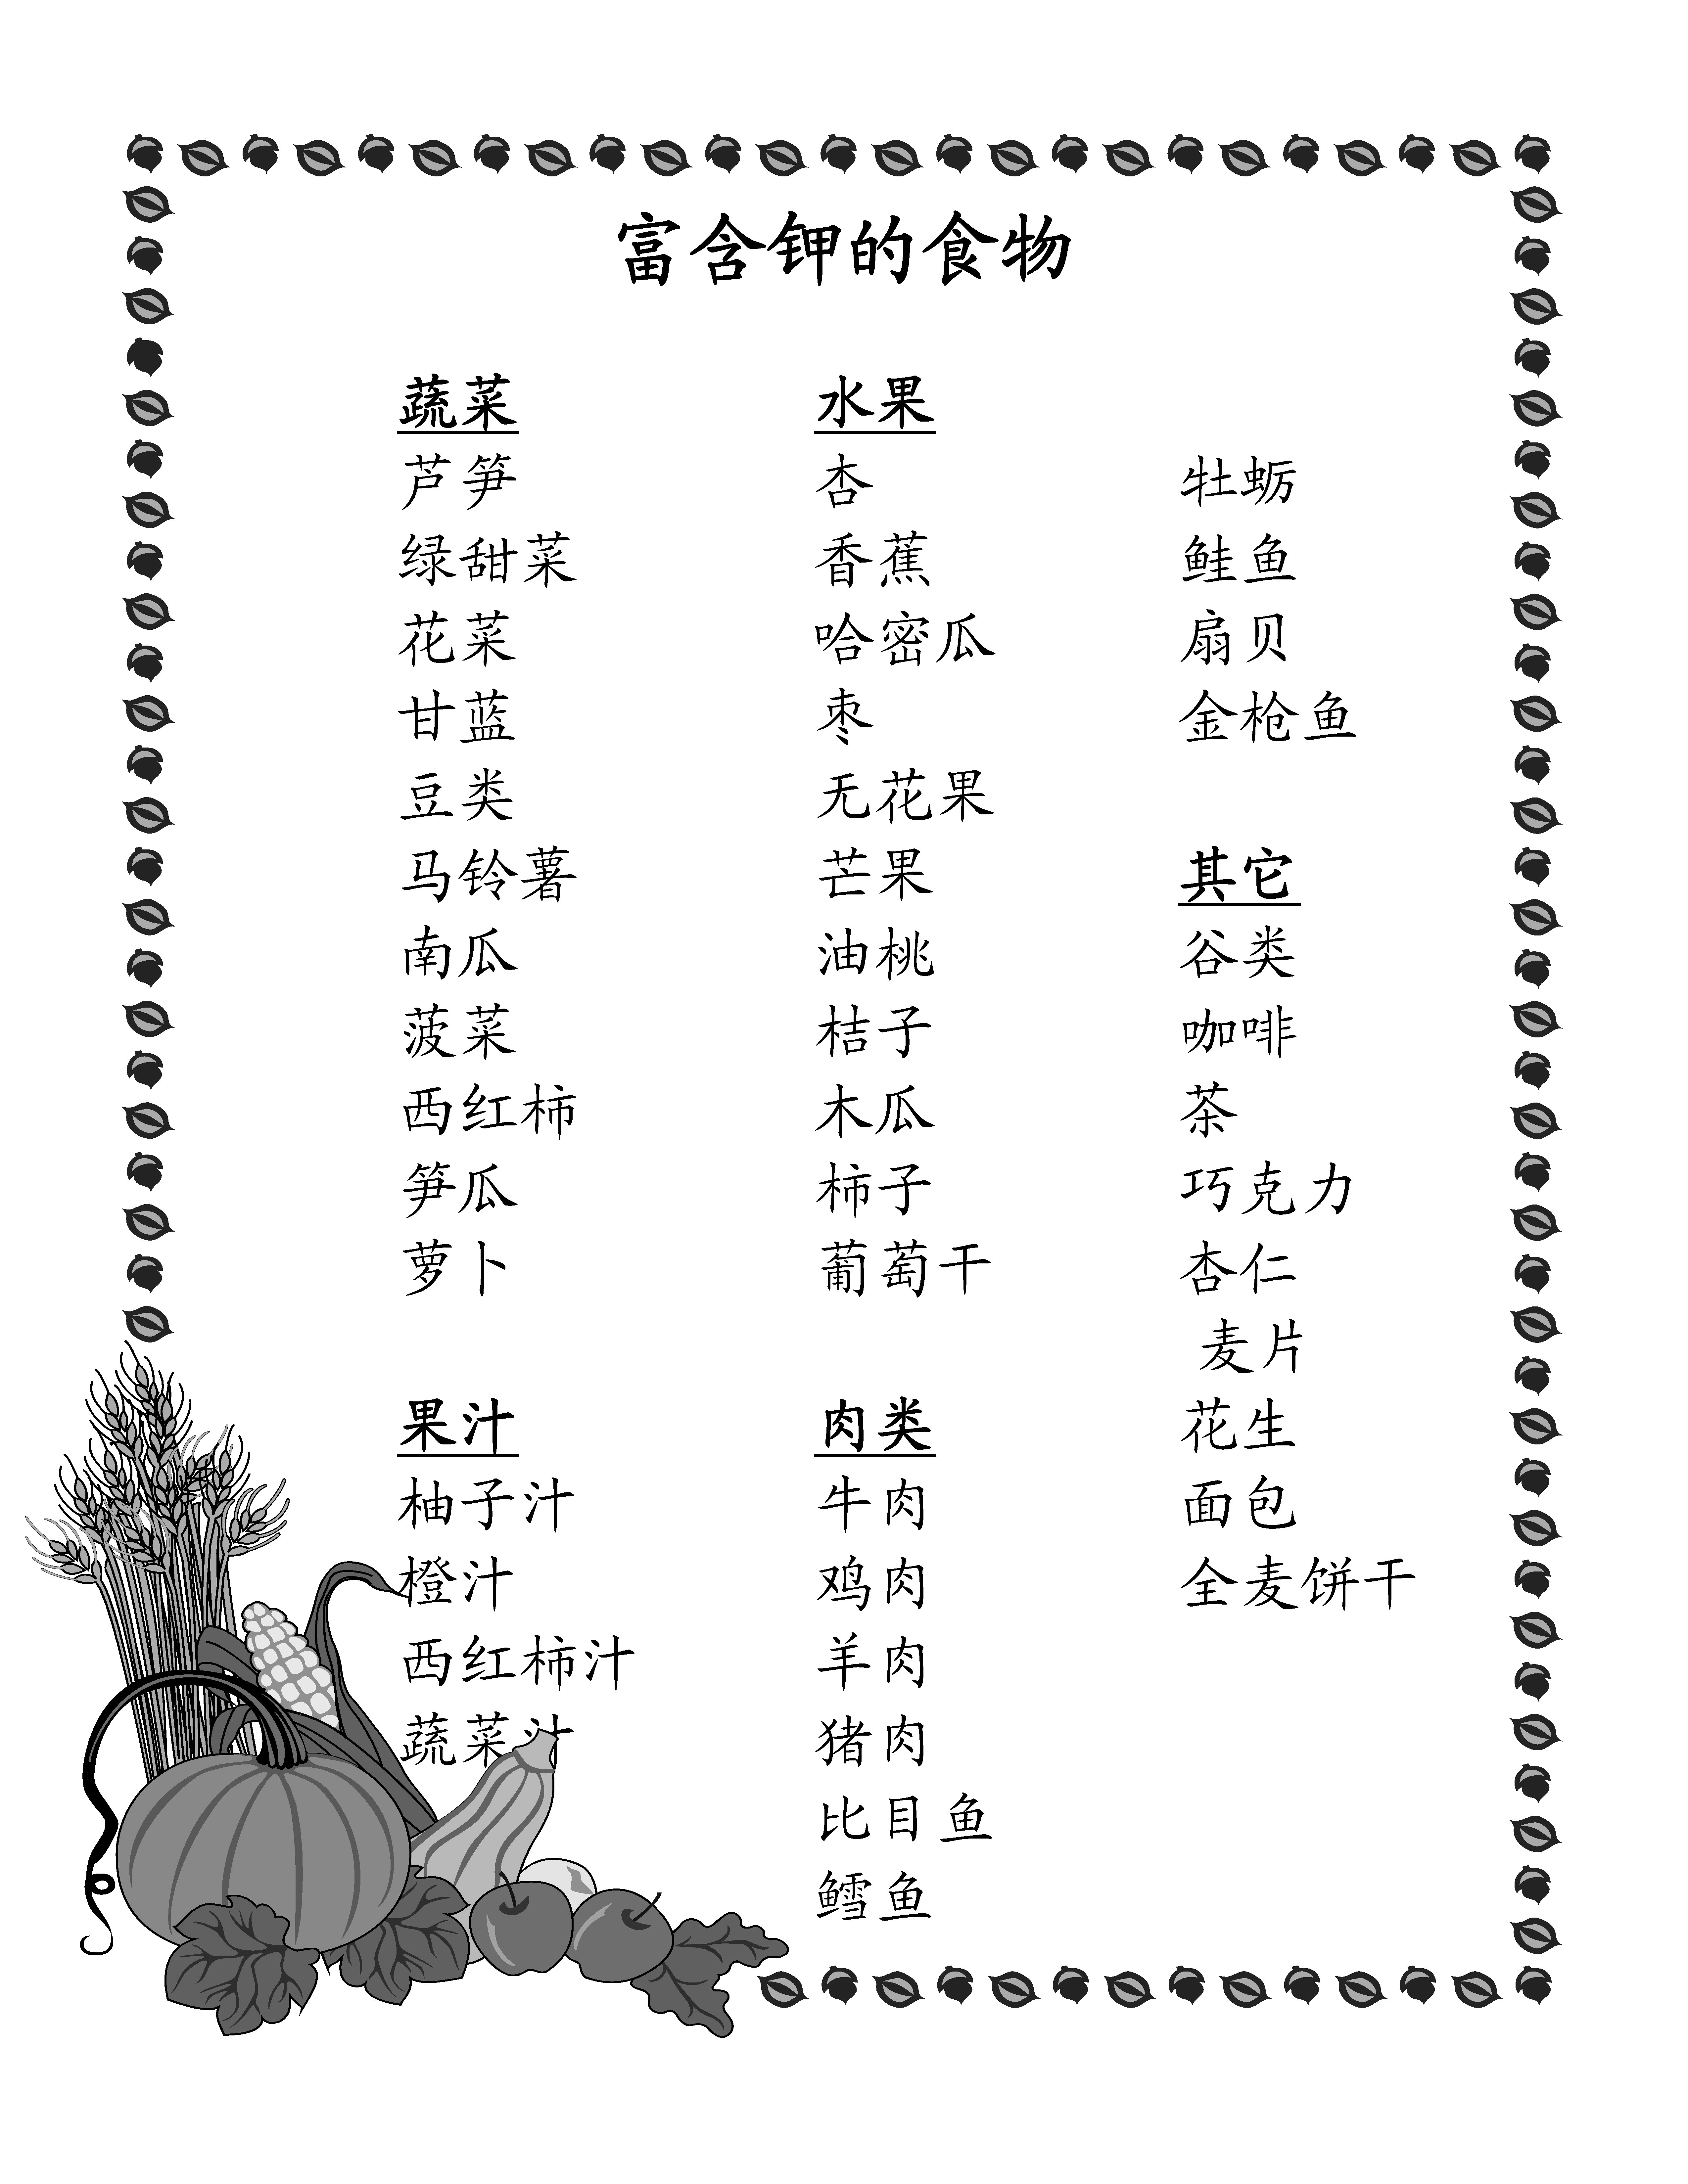 富含钾的食物
蔬菜
芦笋
绿甜菜
花菜
甘蓝
豆类
马铃薯
南瓜
菠菜
西红柿
笋瓜
萝卜
果汁
柚子汁
橙汁
西红柿汁
蔬菜汁
水果
杏
香蕉
哈密瓜
枣
无花果
芒果
油桃
桔子
木瓜
柿子
葡萄干
肉类
牛肉
鸡肉
羊肉
猪肉
比目鱼
鳕鱼
牡蛎
鲑鱼
扇贝
金枪鱼
其它
谷类
咖啡
茶
巧克力
杏仁
麦片
花生
面包
全麦饼干